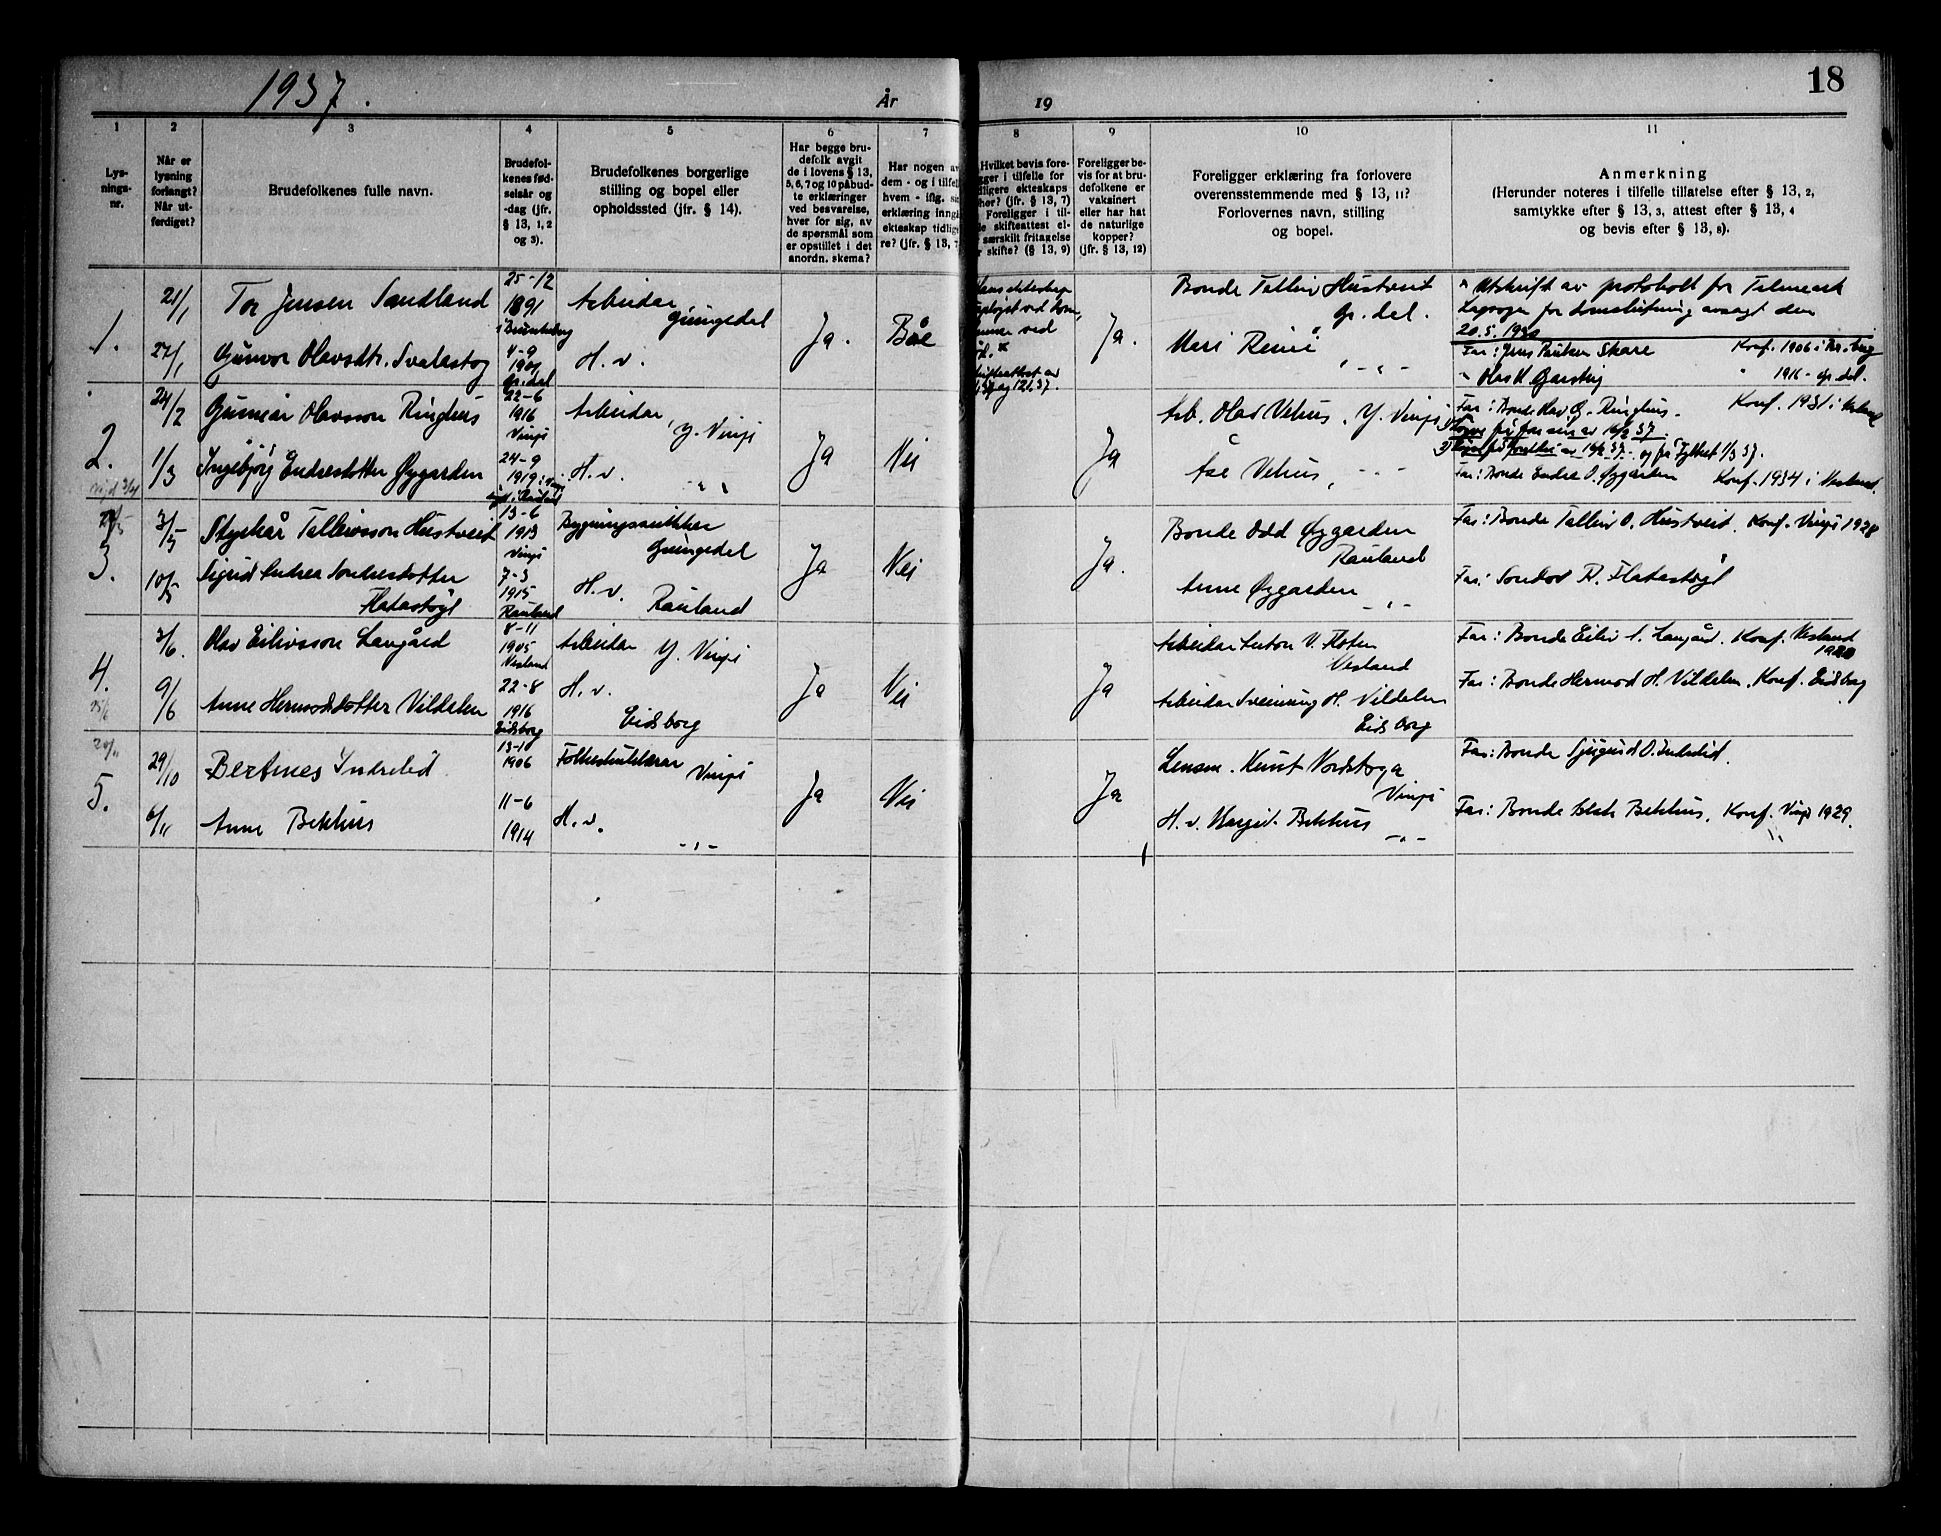 1937.
År
19
18
1
2
3
4
5
6
7
8
9
10
11
Lys-
nings-
nr.
Når er
lysning
forlangt?
Når ut-
ferdiget?
Brudefolkenes fulle navn.
Brudefol-
kenes fød-
selsår og
-dag (jfr.
§ 13, 1, 2
og 3).
Brudefolkenes borgerlige
stilling og bopel eller
opholdssted (jfr. § 14).
Har begge bru-
defolk avgit
de i lovens § 13,
5, 6, 7 og 10 påbud-
te erklæringer
ved besvarelse,
hver for sig, av
de spørsmål som
er opstillet i det
anordn. skema?
Har nogen av
dem - og i tilfelle
hvem - iflg.
erklæring inngå
ekteskap tidlig
re? (jfr. § 13, 7
Hvilket bevis fore-
gger i tilfelle for
dligere ekteskaps
hør? (jfr. § 13, 7)
Foreligger i til-
le skifteattest el-
særskilt fritagelse
skifte? (§ 13, 9)
Foreligger be-
vis for at bru-
defolkene er
vaksinert
eller har hat
de naturlige
kopper?
(jfr. § 13, 12)
Foreligger erklæring fra forlovere
overensstemmende med § 13, 11?
Forlovernes navn, stilling
og bopel.
Anmerkning
(Herunder noteres i tilfelle tillatelse efter § 13, 2,
samtykke efter § 13, 3, attest efter § 13, 4
og bevis efter § 13, 8).
1.
21/1
27/1
Tor Jensen Sandland
Gunvor Olavsdtr. Svalastog
25-12
1891
4-9
1901
Gr.del
Arbeidar
Grungedal
H. v.
Ja.
Båe
ved
Ja.
Bonde Tallev Hustveit
Gr. del.
Meri
Utskrift av protokoll for Telemark
20.5.1930
Far: Jens Paulsen Skare
Konf. 1906 i
Olav
1916 - gr.del.
2.
24/2
1/3
Gunnar Olavsson Ringhus
Ingebjörg Endresdotter Øygarden
22-6
1916
Vinje
24-9
1919
Arbeidar
Y. Vinje
H. v.
Ja
Nei
Ja
Arb. Olav Vehus, Y. Vinje
Åse Vehus,
Far: Bonde Olav G. Ringhus.
Konf. 1931 i Nesland
og frå Fylket 1/3 37.
Far: Bonde Endre O. Øygarden
Konf. 1934 i Nesland.
3.
3/5
10/5
Styrkår Tallevsson Hustveit
Sigrid Andrea Sondresdotter
Flatastøyl
13-6
1913
Vinje
7-3
1915
Rauland
Bygningssnikkar
Grungedal
H. v.
Rauland
Ja
Nei
Ja.
Bonde Odd Øygarden
Rauland
Anne Øygarden
Far: Bonde Tallev O. Hustveit. Konf. Vinje 1928
Far: Sondov R. Flatastøyl
4.
25/6
3/6.
9/6
Olav Eilivsson Langård
Anne Hermodsdotter Vildalen
8-11
1905
Nesland
22-8
1916
Eidsborg
Arbeidar
Y. Vinje
H. v.
Eidsborg
Ja
Nei
Ja
Arbeidar Anton V. Floten
Nesland
Arbeidar Sveinung H. Vildalen
Eidsborg
Far: Bonde Eiliv A. Langård. Konf. Nesland
1920
Far: Bonde Hermod H. Vildalen. Konf. Eidsborg
5.
20/11
29/10
6/11
Bertines Indrelid
Anne Bekkhus
13-10
1906
11-6
1914
Folkeskulelærar
Vinje
H. v.
Ja
Nei
Ja
Lensm. Knut Nordstoga
Vinje
H. v. Margit Bekkhus
Far: Bonde Sjugurd O. Indrelid.
Far: Bonde Bekkhus, Konf. Vinje 1929.